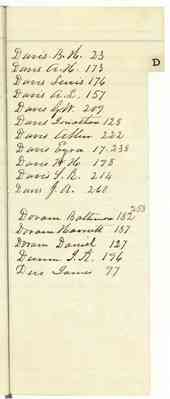 D
Davis B. H. 23
Davis A. H. 173
Davis Lewis 176
Davis A. L. 157
Davis G W. 209
Davis Jonathan 125
Davis Allen 222
Davis Ezra 17-235
Davis W H 175
Davis S. R. 214
Davis J. A. 260
253
Doram Baltimore 152
Doram Harriett 157
Doram Daniel 127
J. R. 196
James 77